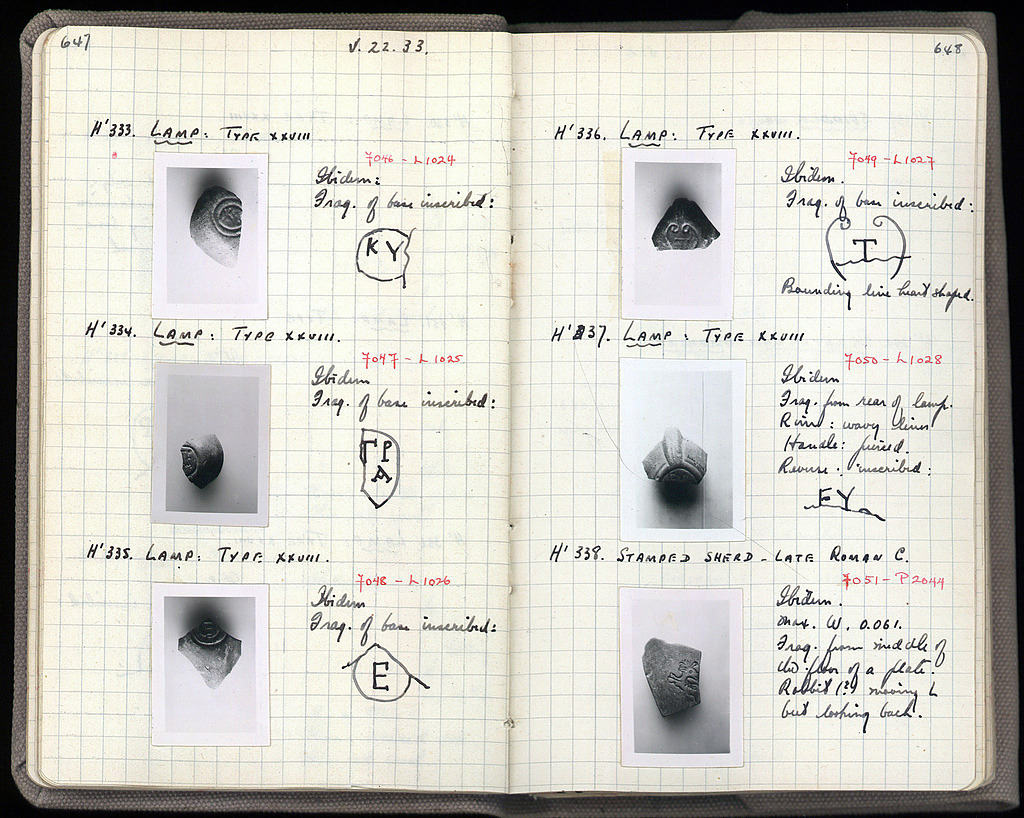 647
V. 22. 33.
H' 333. LAMP: TYPE XXVIII
7046 - L 1024
Ibidem:
Frag. of base inscribed:
ΚΥ
H' 334. LAMP: TYPE XXVIII.
7047 - L 1025
Ibidem
Frag. of base inscribed:
ΓΡ
Α
H' 335. LAMP: TYPE XXVIII.
7048 - L 1026
Ibidem
Frag. of base inscribed:
Ε
648
H' 336. LAMP: TYPE XXVIII.
7049 - L 1027
Ibidem.
Frag. of base inscribed:
Τ
Bounding line heart shaped.
H' 337. LAMP: TYPE XXVIII
7050 - L 1028
Ibidem
Frag. from rear of lamp.
Rim: wavy lines
Handle: pierced.
Reverse: inscribed:
ΕΥ
H' 338. STAMPED SHERD - LATE ROMAN C.
7051 - P 2044
Ibidem.
Max. W. 0.061.
Frag. from middle of
the floor of a plate.
Rabbit (?) moving L
but looking back.